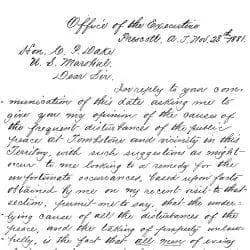 Office of the Executive
Prescott, A.T. Nov. 28th 1881.
Hon. C. P. Dake
U. S. Marshal.
Dear Sir.
In reply to your com-
munication of this date asking me to
give you my opinion of the causes of
the frequent disturbances of the public
peace at Tombstone and vicinity in this
Territory, with such suggestions as might
occur to me looking to a remedy for the
unfortunate occurances, based upon facts
obtained by me on my recent visit to that
section, permit me to say, that the under-
lying cause of all the disturbances of the
peace, and the taking of property unlaw-
fully, is the fact that all men of every